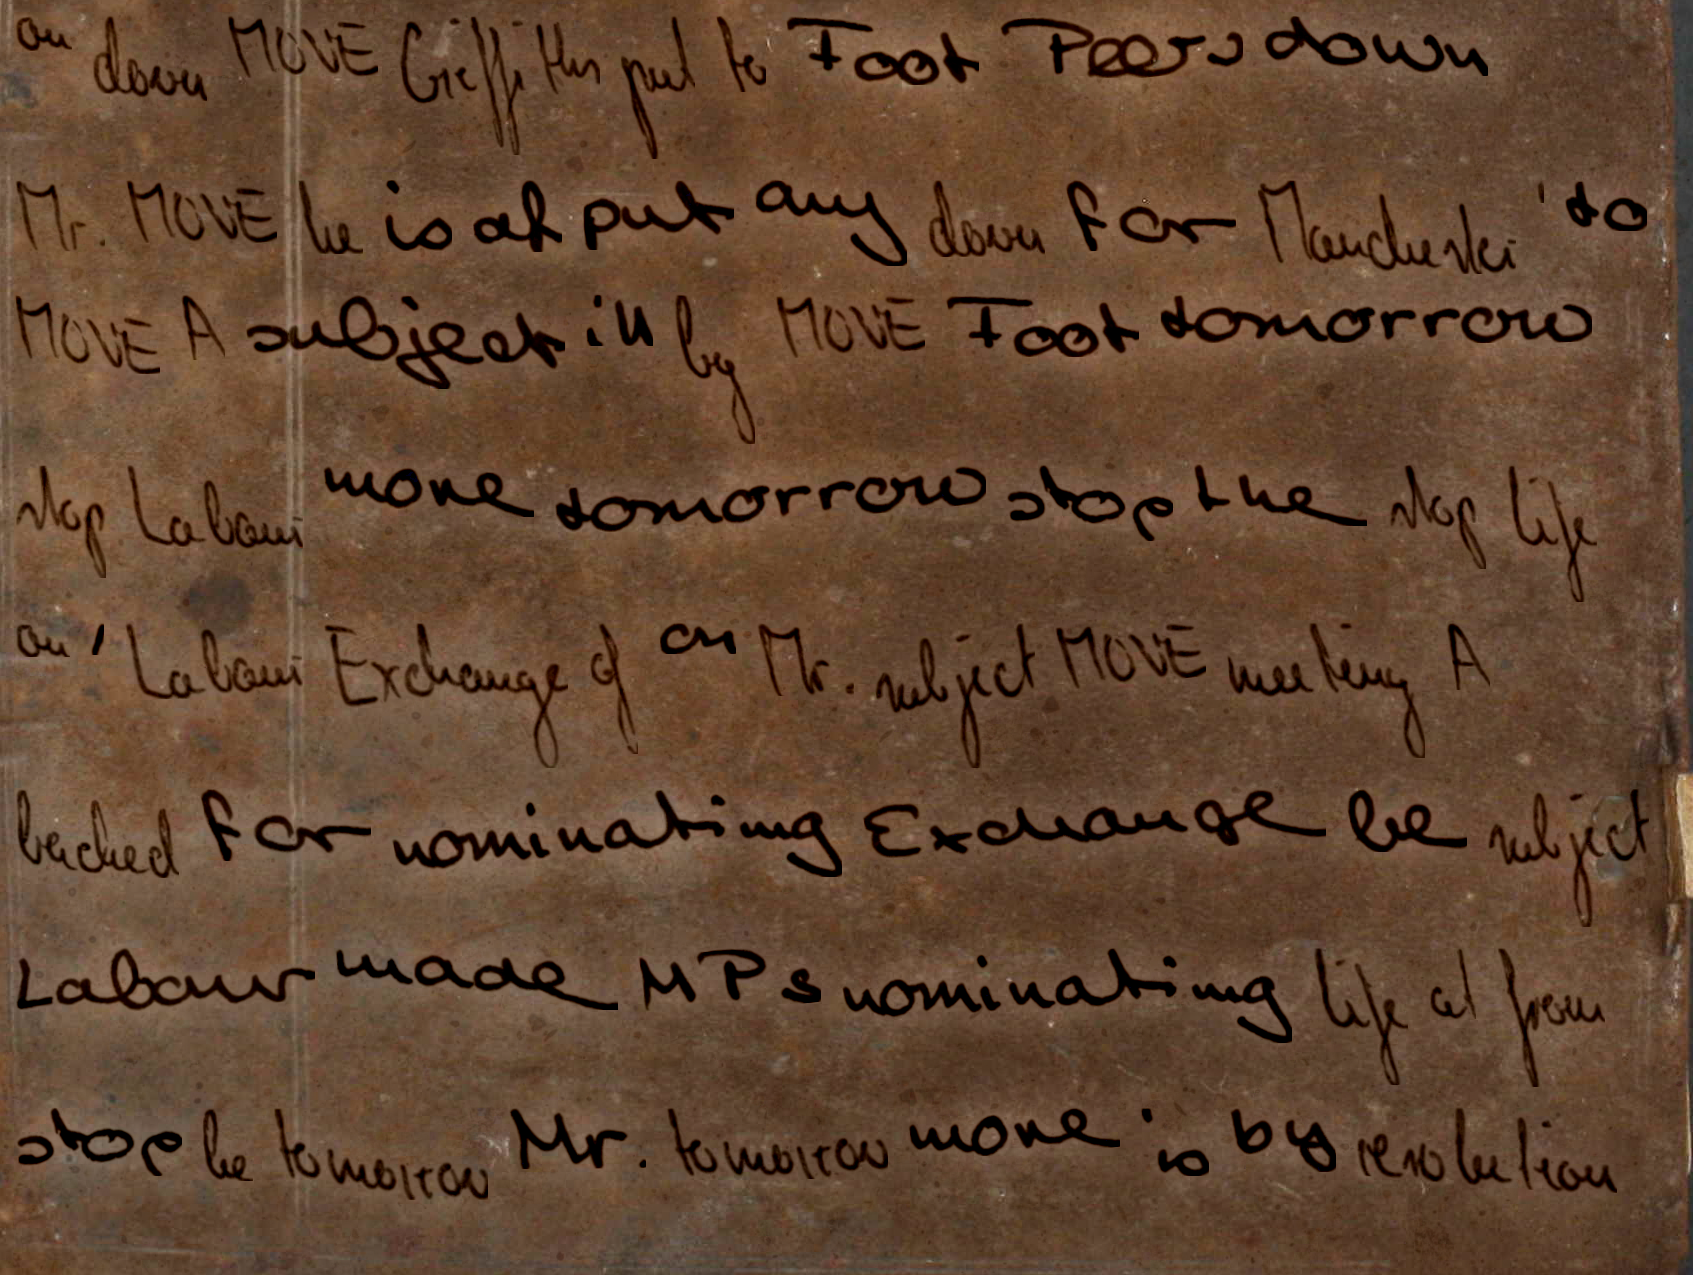 on down MOVE Griffiths put to Foot Peers down
Mr. MOVE be is of put any down for Manchester to
MOVE A subject in by MOVE Foot tomorrow
stop Labour move tomorrow stop the stop life
on ' Labour Exchange of on Mr. subject MOVE meeting A
backed for nominating Exchange be subject
Labour made MPs nominating life at from
stop be tomorrow Mr. tomorrow move is by resolution